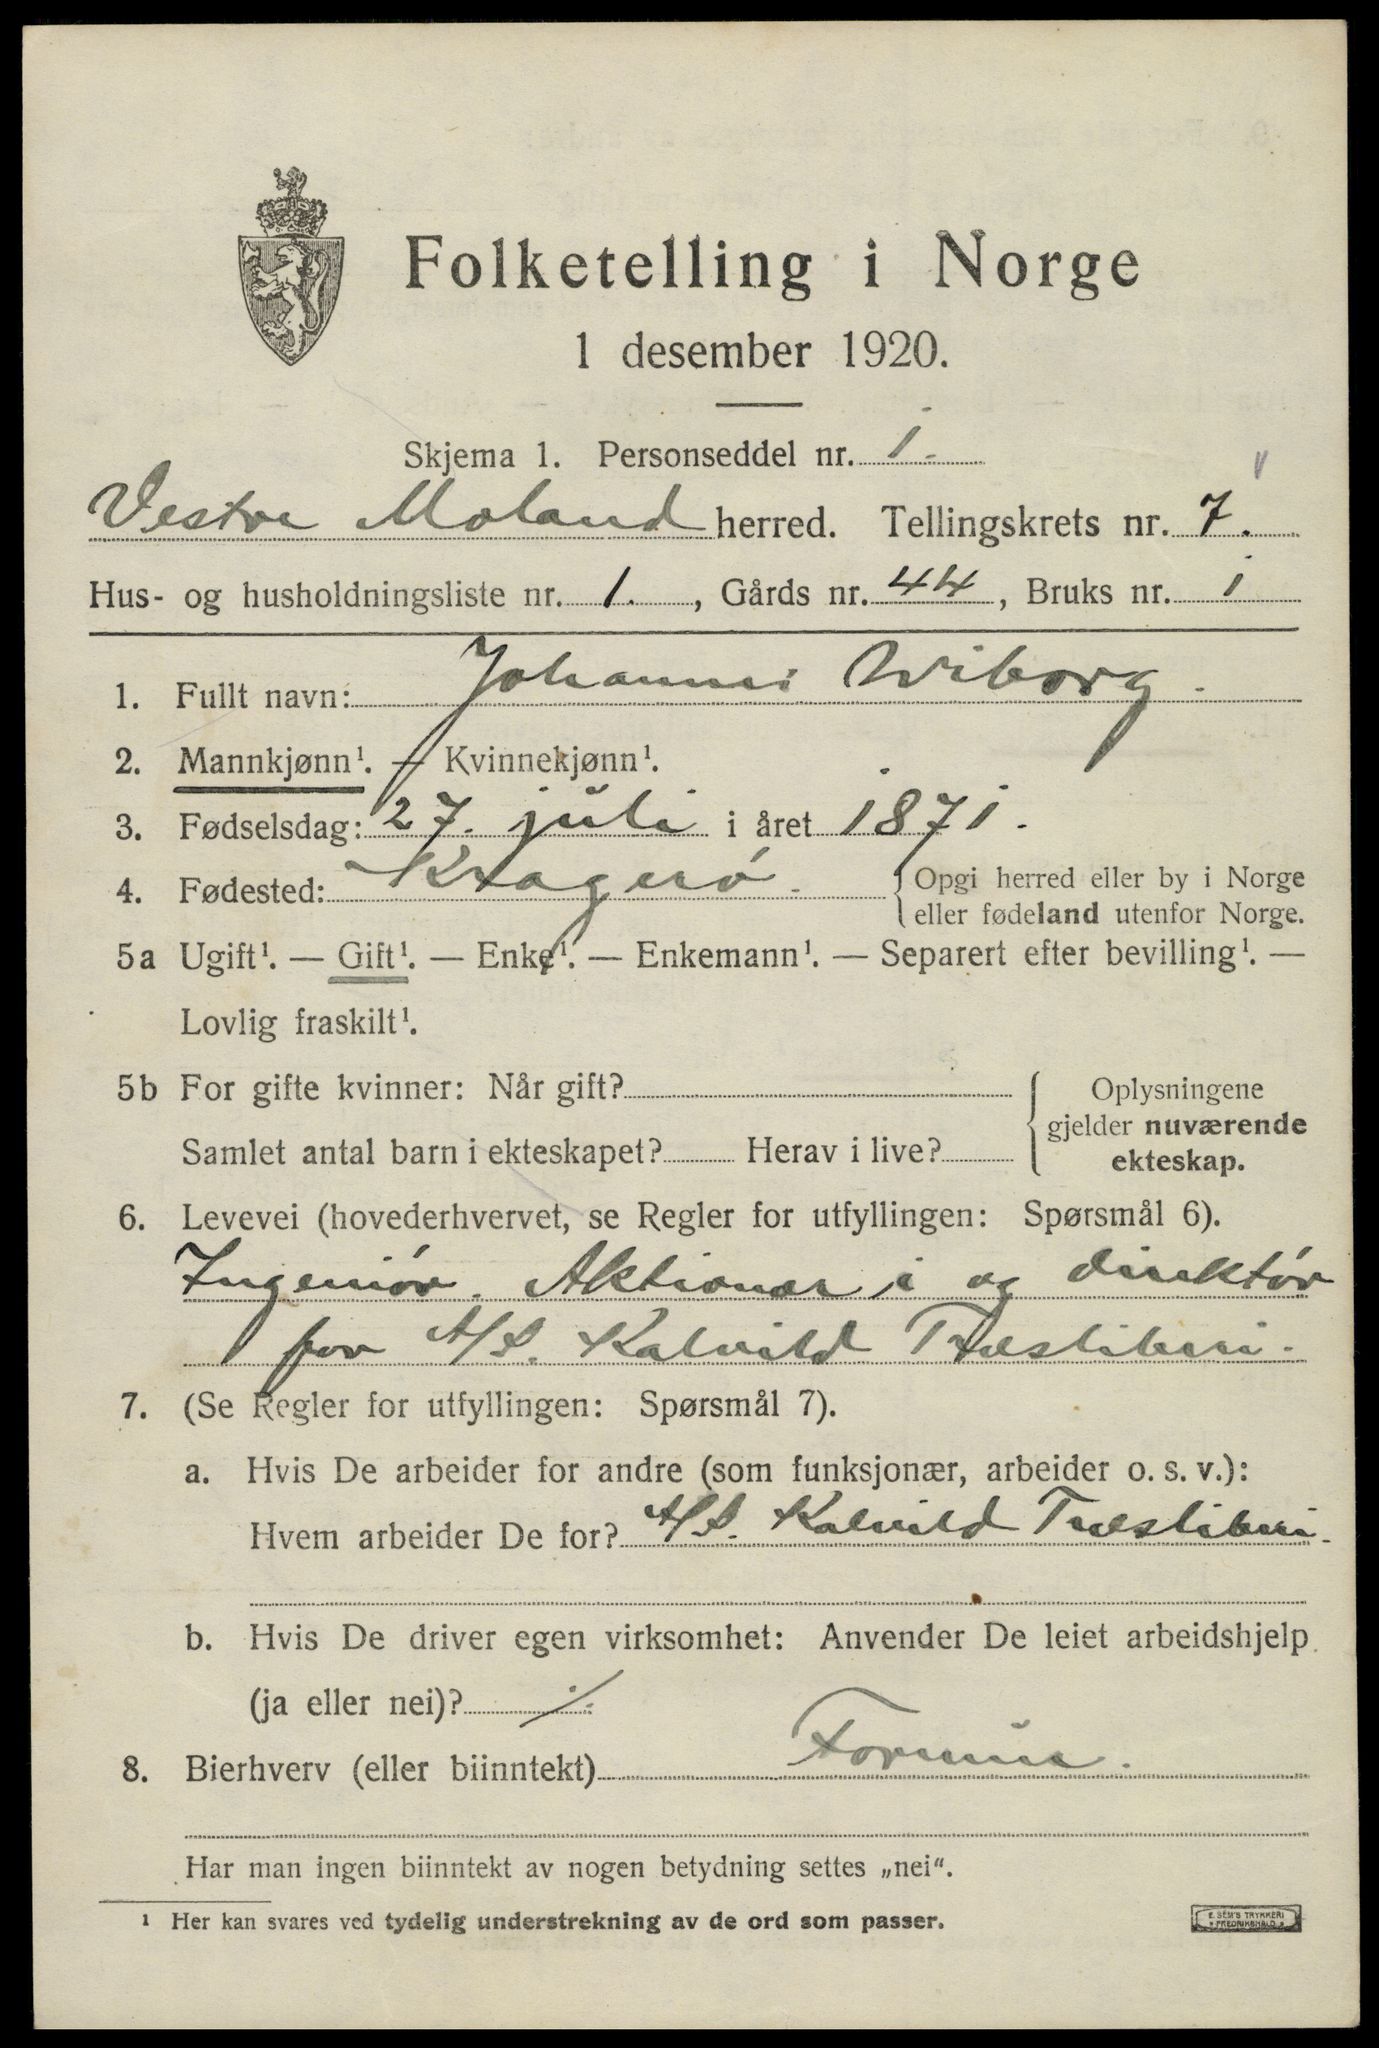 Folketelling i Norge
1 desember 1920.
Skjema 1. Personseddel nr. 1.
Vestre Moland herred. Tellingskrets nr. 7.
Hus- og husholdningsliste nr. 1., Gårds nr. 44, Bruks nr. 1
1. Fullt navn: Johannes Wiborg.
2. Mannkjønn¹. — Kvinnekjønn¹.
3. Fødselsdag: 27. juli i året 1871.
4. Fødested: Kragerø. Opgi herred eller by i Norge
eller fødeland utenfor Norge.
5a Ugift¹. — Gift¹. — Enke¹. — Enkemann¹. — Separert efter bevilling¹. —
Lovlig fraskilt¹.
5b For gifte kvinner: Når gift?
Samlet antal barn i ekteskapet? Herav i live?
Oplysningene
gjelder nuværende
ekteskap.
6. Levevei (hovederhvervet, se Regler for utfyllingen: Spørsmål 6).
Ingeniør. Aktionær i og direktør
for A/S. Kalvild Træsliberi.
7. (Se Regler for utfyllingen: Spørsmål 7).
a. Hvis De arbeider for andre (som funksjonær, arbeider o. s. v.):
Hvem arbeider De for? A/S. Kalvild Træsliberi.
b. Hvis De driver egen virksomhet: Anvender De leiet arbeidshjelp
(ja eller nei)? ./.
8. Bierhverv (eller biinntekt) Formue.
Har man ingen biinntekt av nogen betydning settes „nei“.
¹ Her kan svares ved tydelig understrekning av de ord som passer.
E. SEM'S TRYKKERI
FREDRIKSHALD